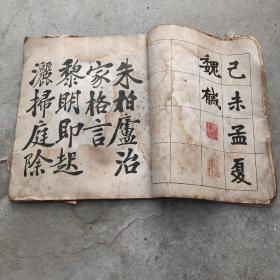 己未孟夏
魏毓
朱柏廬治
家格言
黎明即起
灑掃庭除